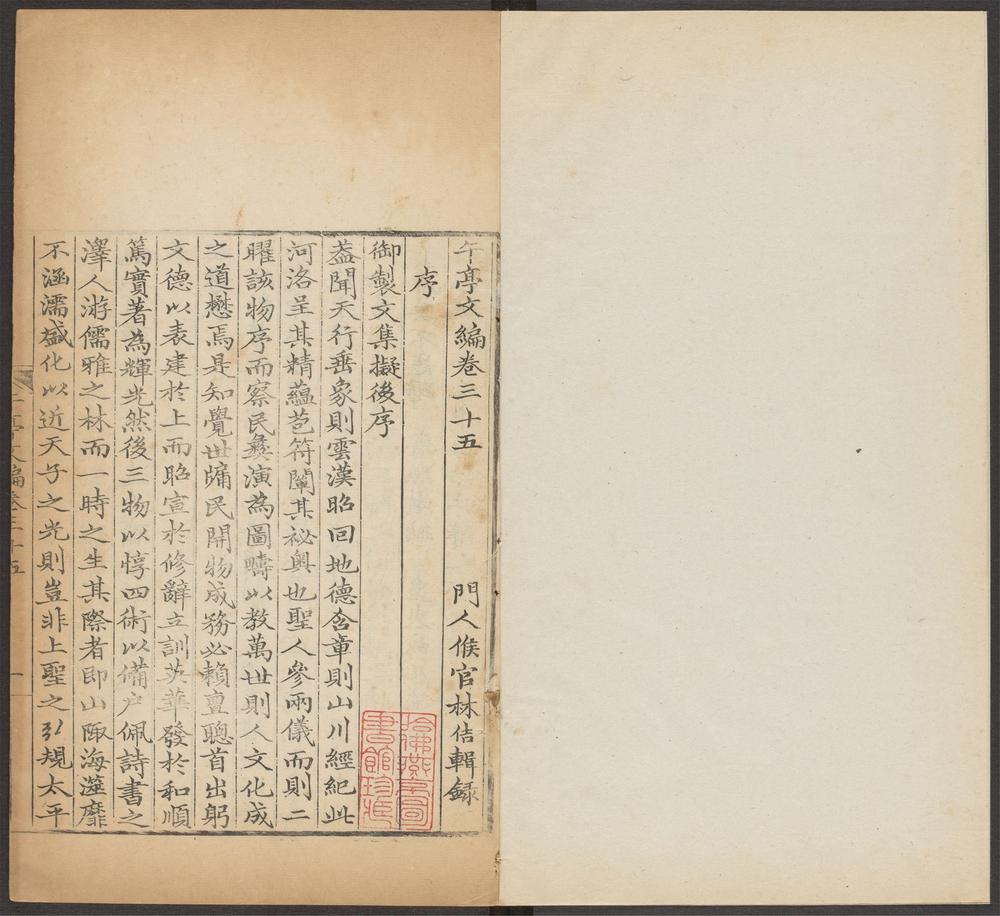 午亭文編卷三十五
門人侯官林佶輯録
序
御製文集擬後序
葢聞天行垂象則雲漢昭回地德含章則山川經紀此
河洛呈其精蘊苞符闡其祕奧也聖人參兩儀而則二
曜該物序而察民彝演為圖疇以教萬世則人文化成
之道懋焉是知覺世牖民開物成務必賴亶聰首出躬
文德以表建於上而昭宣於修辭立訓英華發於和順
篤實著為輝光然後三物以惇四術以備户佩詩書之
澤人游儒雅之林而一時之生其際者即山陬海澨靡
不涵濡盛化以近天子之光則豈非上聖之弘規太平
午亭文編卷三十五
一
哈佛燕京圖
書館珍藏